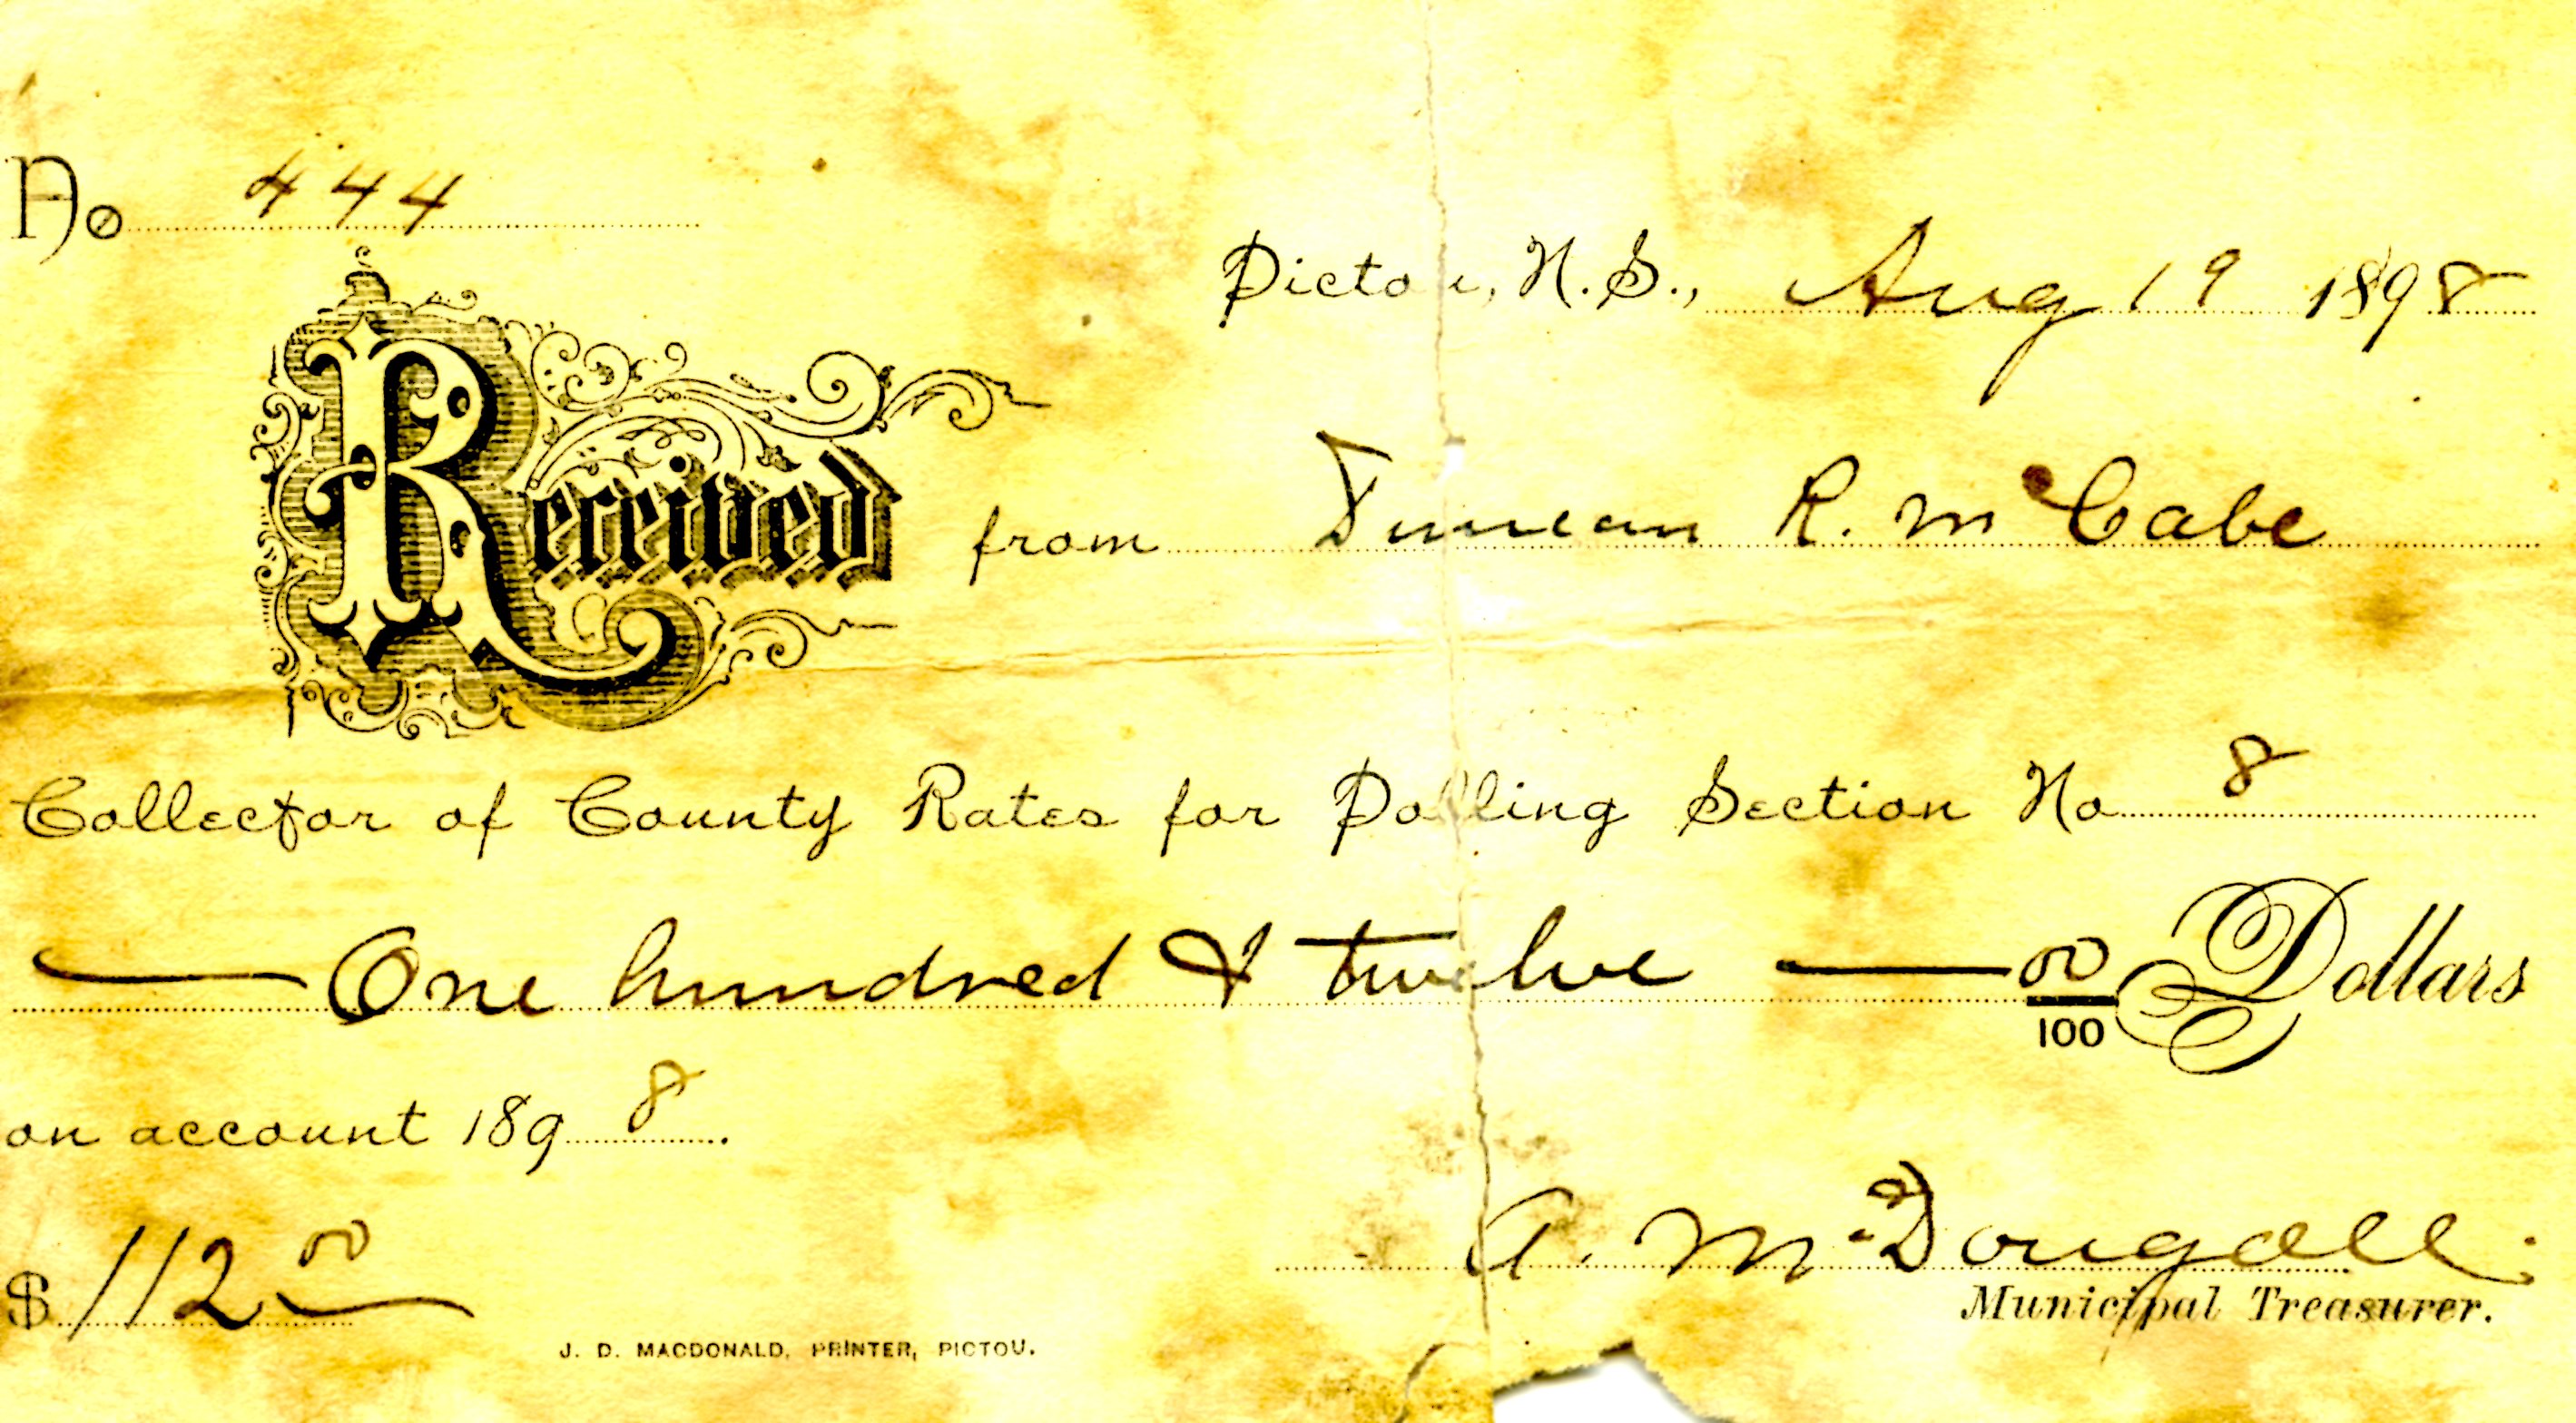 No 444
Pictou, N.S., Aug 19 1898
Received from Duncan R. McCabe
Collector of County Rates for Polling Section No 8
— One hundred & twelve — 00/100 Dollars
on account 1898.
$ 112 00
A. McDougall.
Municipal Treasurer.
J. D. MACDONALD, PRINTER, PICTOU.